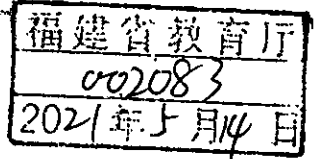 福建省教育厅
002083
2021年5月14日